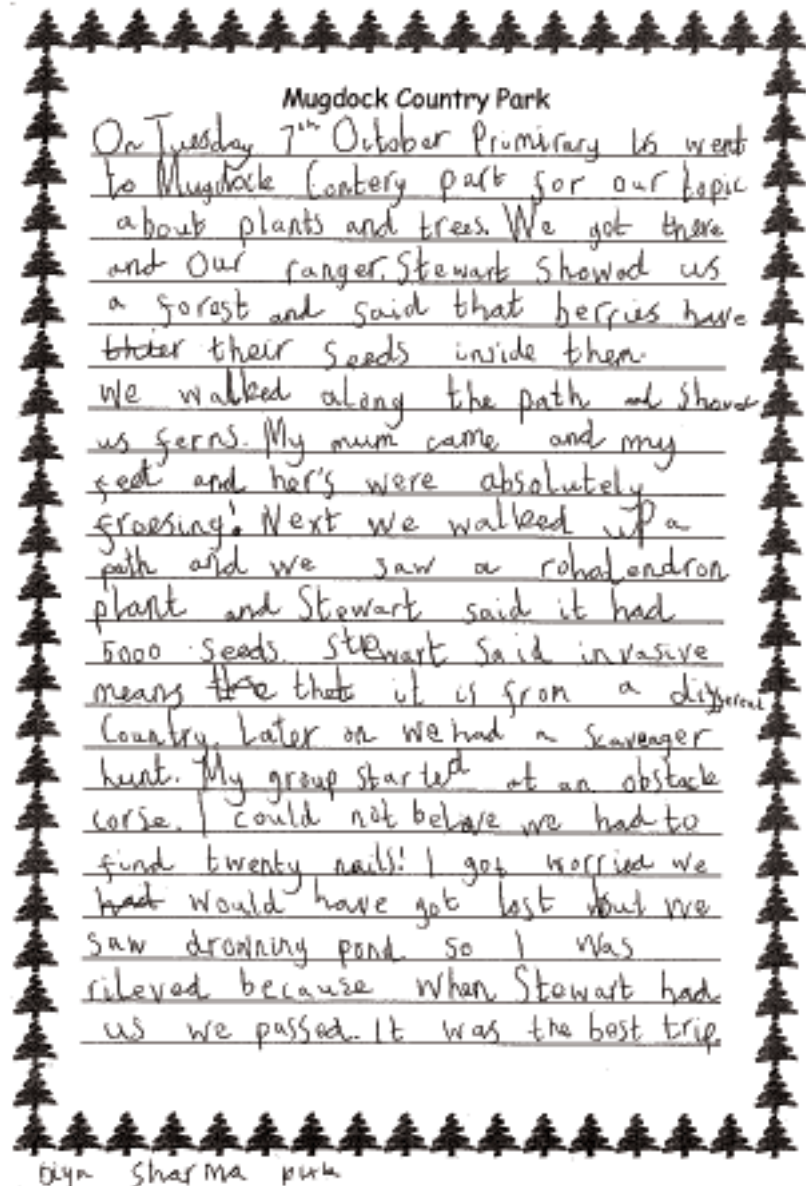 Mugdock Country Park
On Tuesday 7th October Primirary went
to Mugdock Contery park for our topic
about plants and trees. We got there
and Our ranger. Stewart Showed us
a forest and said that berries have
their seeds inside them.
We walked along the path and Showed
us ferns. My mum came and my
feet and her's were absolutely
froesing! Next we walked up a
path and we saw a rohodendron
plant and Stewart said it had
5000 seeds. Stewart said invasive
means that it is from a different
Country. Later on we had a scavenger
hunt. My group started at an obstacle
corse. I could not belive we had to
find twenty nails! I got worried we
had would have got lost but we
saw drowning pond so I was
rileved because when Stewart had
us we passed. It was the best trip.
Diya Sharma